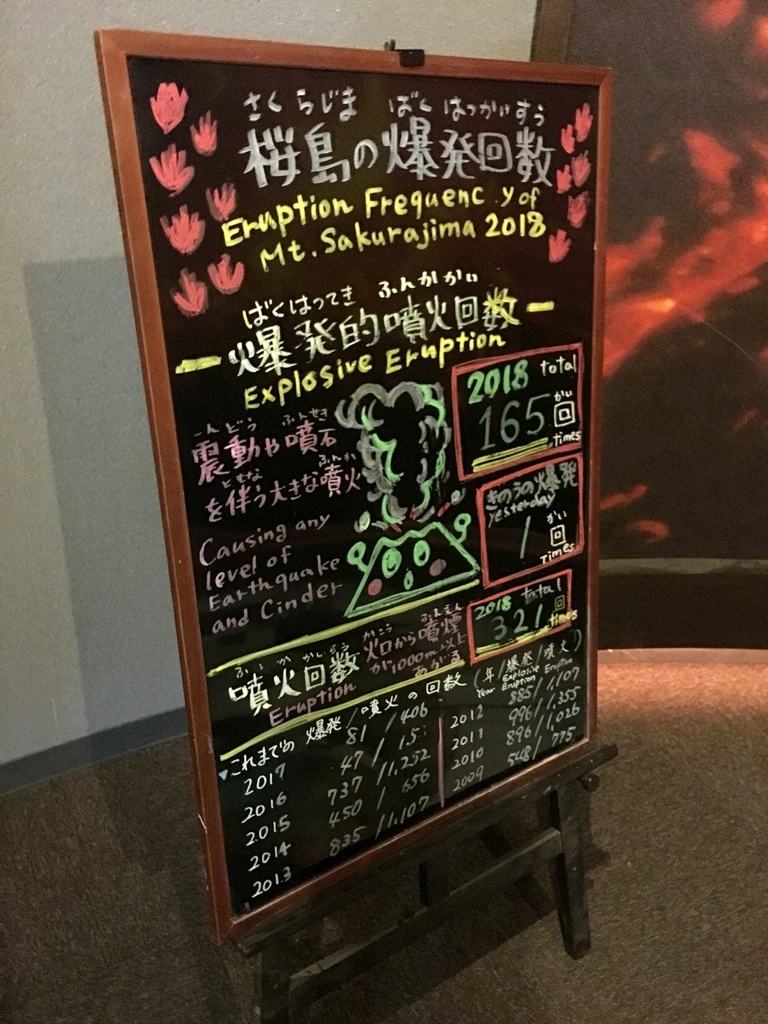 さくらじま ばくはっかいすう
桜島の爆発回数
Eruption Frequenc y of
Mt. Sakurajima 2018
ばくはつてき ふんかかい
爆発的噴火回数
Explosive Eruption
しんどう ふんせき
震動や噴石
ともな ふんか
を伴う大きな噴火
Causing any
level of
Earthquake
and Cinder
2018 total
かい
165回
times
きのうの爆発
Yesterday
かい
1回
Times
2018 total
321回
times
ふんかかいすう
噴火回数
Eruption
かこう ふんえん
火口から噴煙
が1000m以上
あがる
これまでの 爆発/噴火の回数
2017 81/406
2016 47/15
2015 737/1,252
2014 450/656
2013 835/1,107
(年/爆発/噴火)
Year Explosive Eruption Eruption
2012 885/1,107
2011 996/1,355
2010 896/1,026
2009 548/775